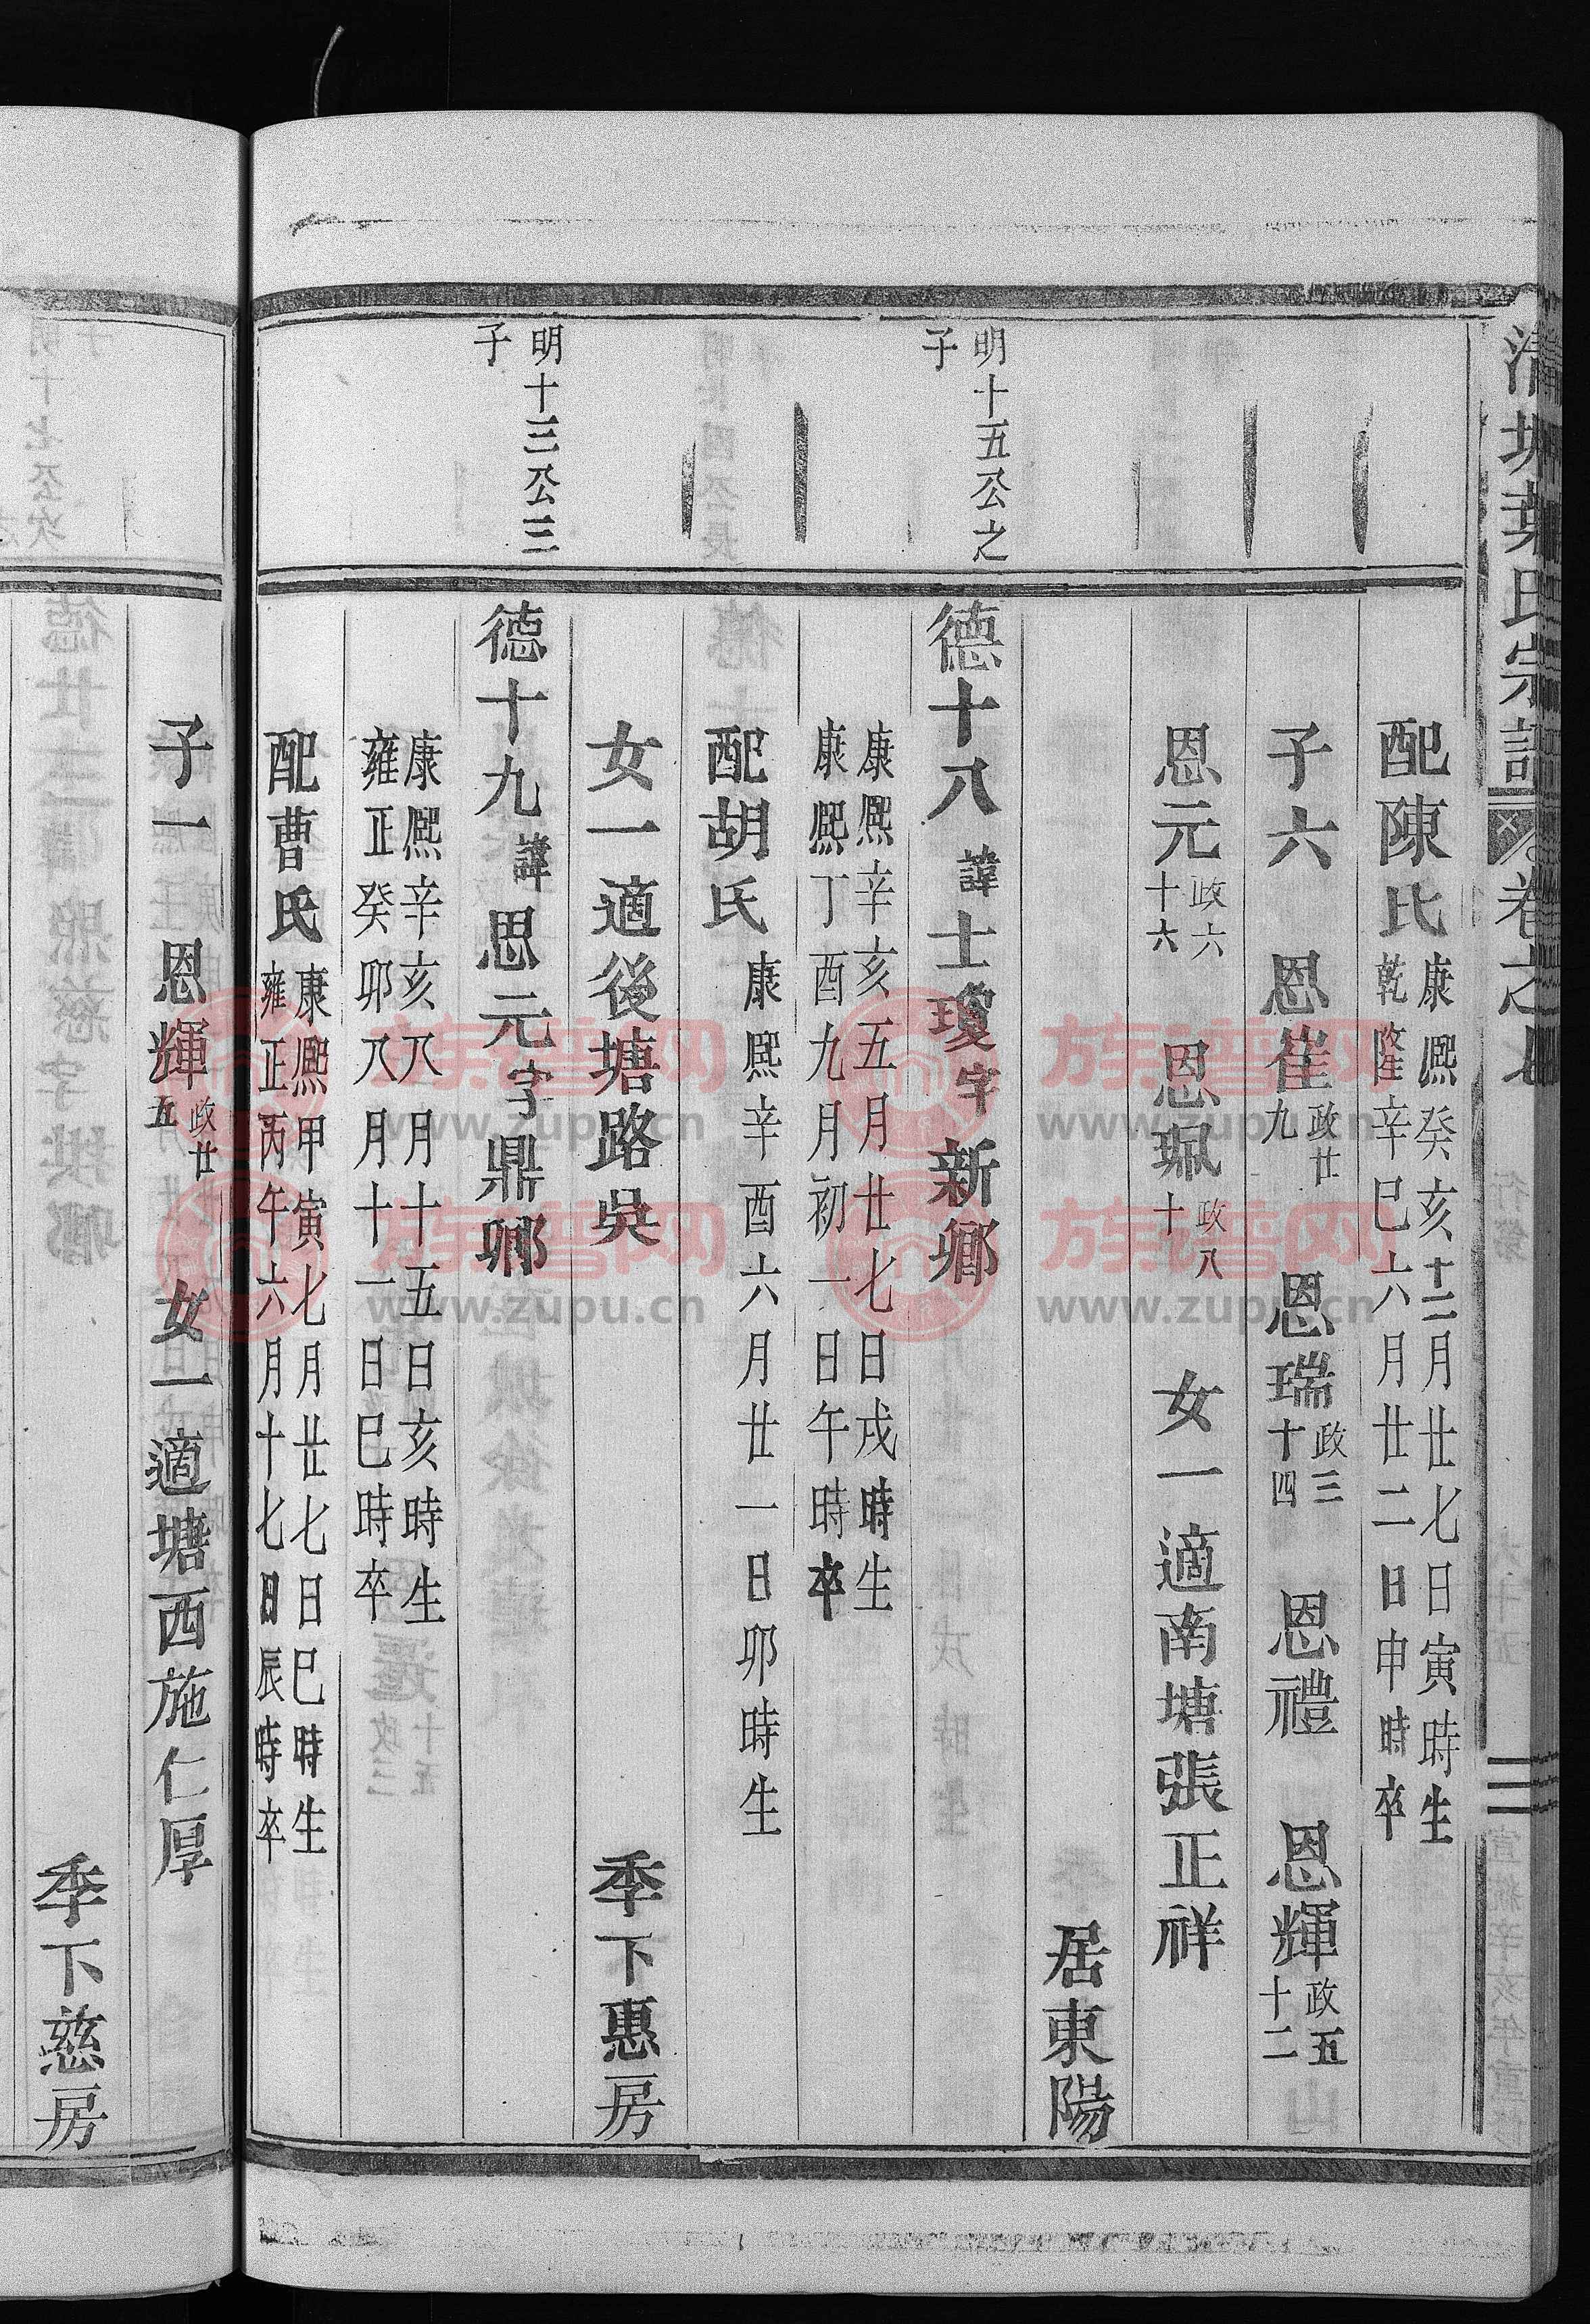 葉氏宗譜 卷之七
二
配陳氏 康熙癸亥十二月廿七日寅時生
乾隆辛巳六月廿二日申時卒
子六 恩崔 政廿九 恩瑞 政三十四 恩禮 恩輝 政五十二
恩元 政六十六 恩珮 政八十 女一適南塘張正祥
居東陽
明十五公之子
德十八 諱士瓊字新鄉
康熙辛亥五月廿七日戌時生
康熙丁酉九月初一日午時卒
配胡氏 康熙辛酉六月廿一日卯時生
女一適後塘路吳
季下惠房
明十三公三子
德十九 諱思元字鼎鄉
康熙辛亥八月十五日亥時生
雍正癸卯八月十一日巳時卒
配曹氏 康熙甲寅七月廿七日巳時生
雍正丙午六月十七日辰時卒
子一 恩輝 政廿五 女一適塘西施仁厚
季下慈房
族谱网
www.zupu.cn
族谱网
www.zupu.cn
族谱网
www.zupu.cn
族谱网
www.zupu.cn